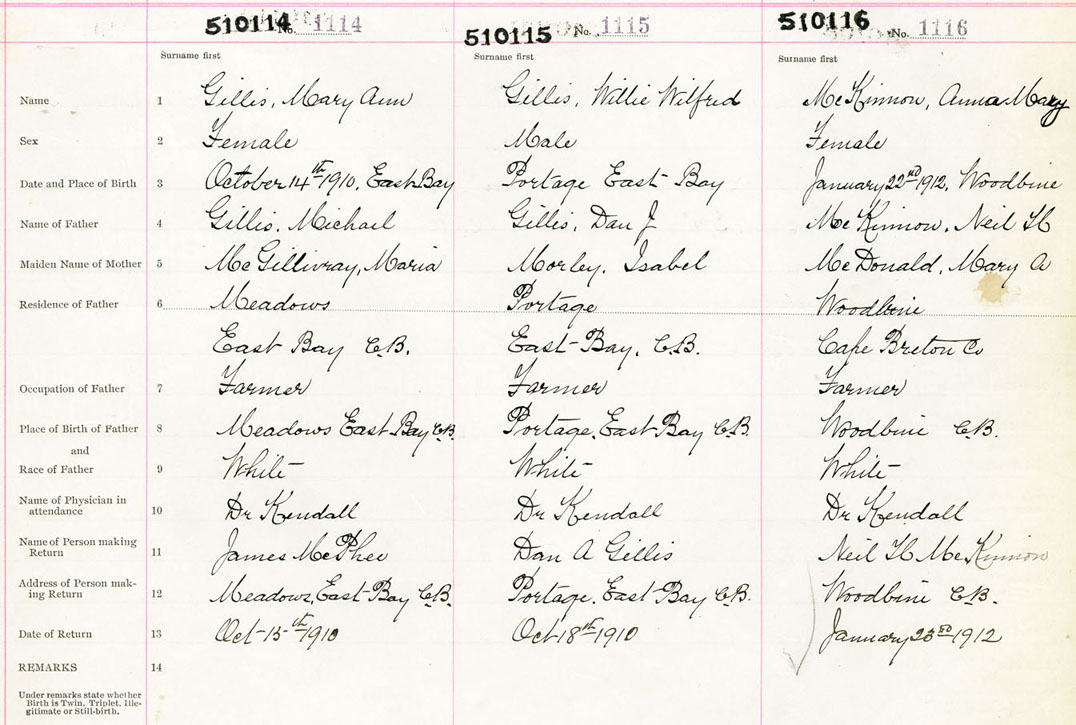 510114 No. 1114 510115 No. 1115 510116 No. 1116
Surname first Surname first Surname first
Name 1 Gillis, Mary Ann Gillis, Willie Wilfred McKinnon, Anna Mary
Sex 2 Female Male Female
Date and Place of Birth 3 October 14th 1910, East Bay Portage East Bay January 22nd 1912, Woodbine
Name of Father 4 Gillis, Michael Gillis, Dan J McKinnon, Neil H
Maiden Name of Mother 5 McGillivray, Maria Morley, Isabel McDonald, Mary A
Residence of Father 6 Meadows Portage Woodbine
East Bay C.B. East Bay, C.B. Cape Breton Co
Occupation of Father 7 Farmer Farmer Farmer
Place of Birth of Father 8 Meadows East Bay C.B. Portage, East Bay C.B. Woodbine C.B.
and
Race of Father 9 White White White
Name of Physician in
attendance 10 Dr Kendall Dr Kendall Dr Kendall
Name of Person making
Return 11 James McPhee Dan A Gillis Neil H McKinnon
Address of Person mak-
ing Return 12 Meadows, East Bay C.B. Portage, East Bay C.B. Woodbine C.B.
Date of Return 13 Oct 15th 1910 Oct 18th 1910 January 23rd 1912
REMARKS 14
Under remarks state whether
Birth is Twin, Triplet, Ille-
gitimate or Still-birth.